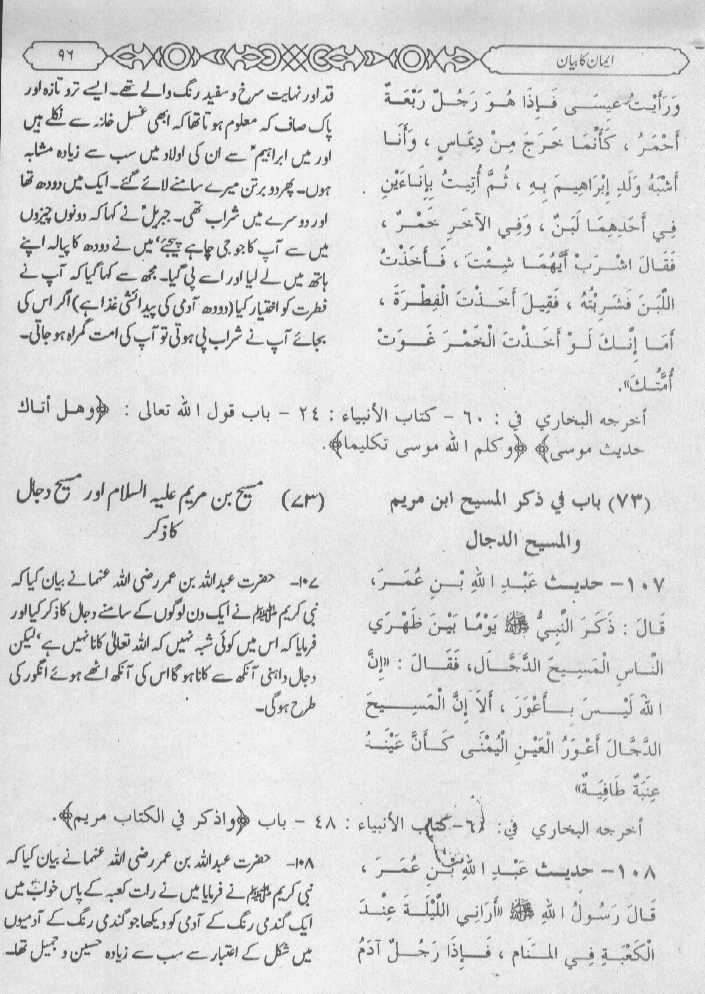 ایمان کا بیان
۹۶
وَرَأَيْتُ عِيسَى فَإِذَا هُوَ رَجُلٌ رَبْعَةٌ
أَحْمَرُ ، كَأَنَّمَا خَرَجَ مِنْ دِيمَاسٍ ، وَأَنَا
أَشْبَهُ وَلَدِ إِبْرَاهِيمَ بِهِ ، ثُمَّ أُتِيتُ بِإِنَاءَيْنِ
فِي أَحَدِهِمَا لَبَنٌ ، وَفِي الآخَرِ خَمْرٌ ،
فَقَالَ اشْرَبْ أَيَّهُمَا شِئْتَ ، فَأَخَذْتُ
اللَّبَنَ فَشَرِبْتُهُ ، فَقِيلَ أَخَذْتَ الْفِطْرَةَ ،
أَمَا إِنَّكَ لَوْ أَخَذْتَ الْخَمْرَ غَوَتْ
أُمَّتُكَ».
قد اور نہایت سرخ و سفید رنگ والے تھے۔ ایسے تروتازہ اور
پاک صاف کہ معلوم ہوتا تھا کہ ابھی غسل خانہ سے نکلے ہیں
اور میں ابراہیمؑ سے ان کی اولاد میں سب سے زیادہ مشابہ
ہوں۔ پھر دو برتن میرے سامنے لائے گئے۔ ایک میں دودھ تھا
اور دوسرے میں شراب تھی۔ جبریلؑ نے کہا کہ دونوں چیزوں
میں سے آپ کا جو جی چاہے پیجئے‘ میں نے دودھ کا پیالہ اپنے
ہاتھ میں لے لیا اور اسے پی گیا۔ مجھ سے کہا گیا کہ آپ نے
فطرت کو اختیار کیا (دودھ آدمی کی پیدائشی غذا ہے) اگر اس کی
بجائے آپ نے شراب پی ہوتی تو آپ کی امت گمراہ ہو جاتی۔
أخرجه البخاري في : ٦٠ - كتاب الأنبياء : ٢٤ - باب قول الله تعالى : ﴿وهل أتاك
حديث موسى﴾ ﴿وكلم الله موسى تكليما﴾.
(٧٣) باب في ذكر المسيح ابن مريم
والمسيح الدجال
(۷۳) مسیح بن مریم علیہ السلام اور مسیح دجال
کا ذکر
١٠٧- حديث عَبْدِ اللهِ بْنِ عُمَرَ،
قَالَ : ذَكَرَ النَّبِيُّ ﷺ يَوْمًا بَيْنَ ظَهْرَيِ
النَّاسِ الْمَسِيحَ الدَّجَّالَ، فَقَالَ : «إِنَّ
اللهَ لَيْسَ بِأَعْوَرَ ، أَلاَ إِنَّ الْمَسِيحَ
الدَّجَّالَ أَعْوَرُ الْعَيْنِ الْيُمْنَى كَأَنَّ عَيْنَهُ
عِنَبَةٌ طَافِيَةٌ»
۱۰۷- حضرت عبداللہ بن عمر رضی اللہ عنہما نے بیان کیا کہ
نبی کریم ﷺ نے ایک دن لوگوں کے سامنے دجال کا ذکر کیا اور
فرمایا کہ اس میں کوئی شبہ نہیں کہ اللہ تعالیٰ کانا نہیں ہے‘ لیکن
دجال داہنی آنکھ سے کانا ہو گا اس کی آنکھ اٹھے ہوئے انگور کی
طرح ہو گی۔
أخرجه البخاري في: ٦٠- كتاب الأنبياء : ٤٨ - باب ﴿واذكر في الكتاب مريم﴾.
١٠٨- حديث عَبْدِ اللهِ بْنِ عُمَرَ ،
قَالَ رَسُولُ اللهِ ﷺ «أَرَانِي اللَّيْلَةَ عِنْدَ
الْكَعْبَةِ فِي الْمَنَامِ ، فَإِذَا رَجُلٌ آدَمُ
۱۰۸- حضرت عبداللہ بن عمر رضی اللہ عنہما نے بیان کیا کہ
نبی کریم ﷺ نے فرمایا میں نے رات کعبہ کے پاس خواب میں
ایک گندمی رنگ کے آدمی کو دیکھا جو گندمی رنگ کے آدمیوں
میں شکل کے اعتبار سے سب سے زیادہ حسین و جمیل تھا۔